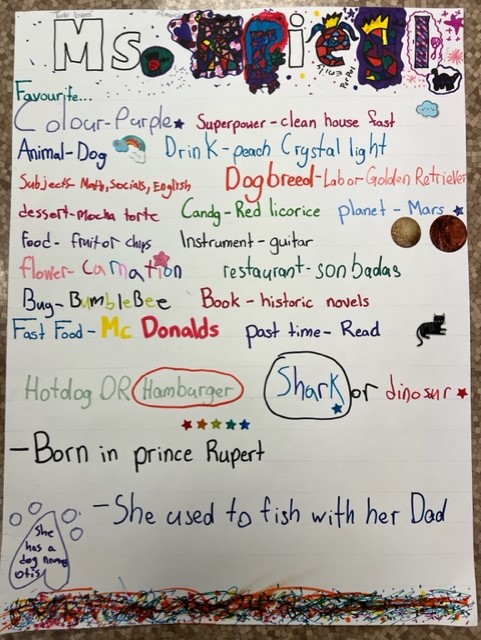 Ms. Kpiesl
Favourite...
Colour-Purple Superpower - clean house fast
Animal-Dog Drink - peach Crystal light
Subjects- Math, Socials, English Dog breed - Lab or Golden Retriever
dessert-mocha torte Candy - Red licorice planet - Mars
food- fruit or chips Instrument - guitar
flower- Carnation restaurant- son badas
Bug- BumbleBee Book - historic novels
Fast Food - Mc Donalds past time- Read
Hotdog OR Hamburger Shark or dinosur
- Born in prince Rupert
- She used to fish with her Dad
She
has a
dog named
otis